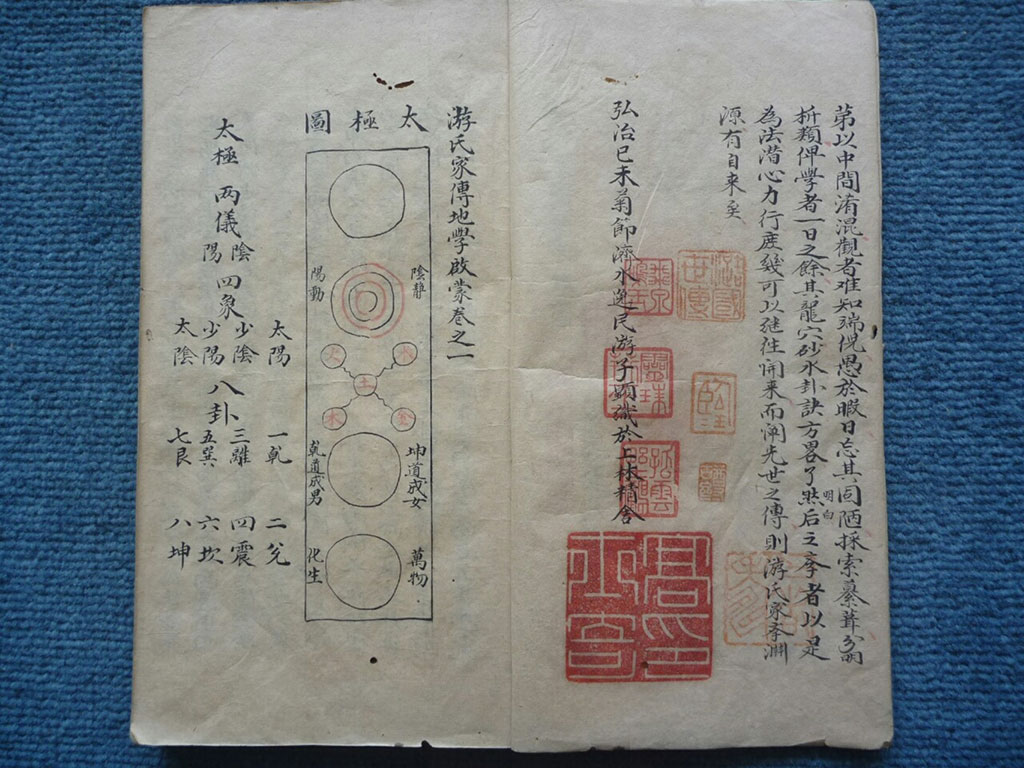 第以中間淆混觀者难知端倪愚於暇日忘其固陋採索彙萃分門
析類俾學者一日之餘其龍穴砂水卦訣方畧了然后之孝者以是
明白
為法潜心力行庶幾可以继往开来而阐先世之傳則游氏家孝渊
源有自来矣
弘治已未菊節濟水逸民游子顕識於上林精舍
游氏家傳地學啟蒙卷之一
太極圖
陰靜
陽動
火
水
土
木
金
坤道成女
乾道成男
萬物
化生
太極 两儀 陰 陽 四象 太陽 少陰 少陽 太陰 八卦 一乾 二兌 三離 四震 五巽 六坎 七艮 八坤